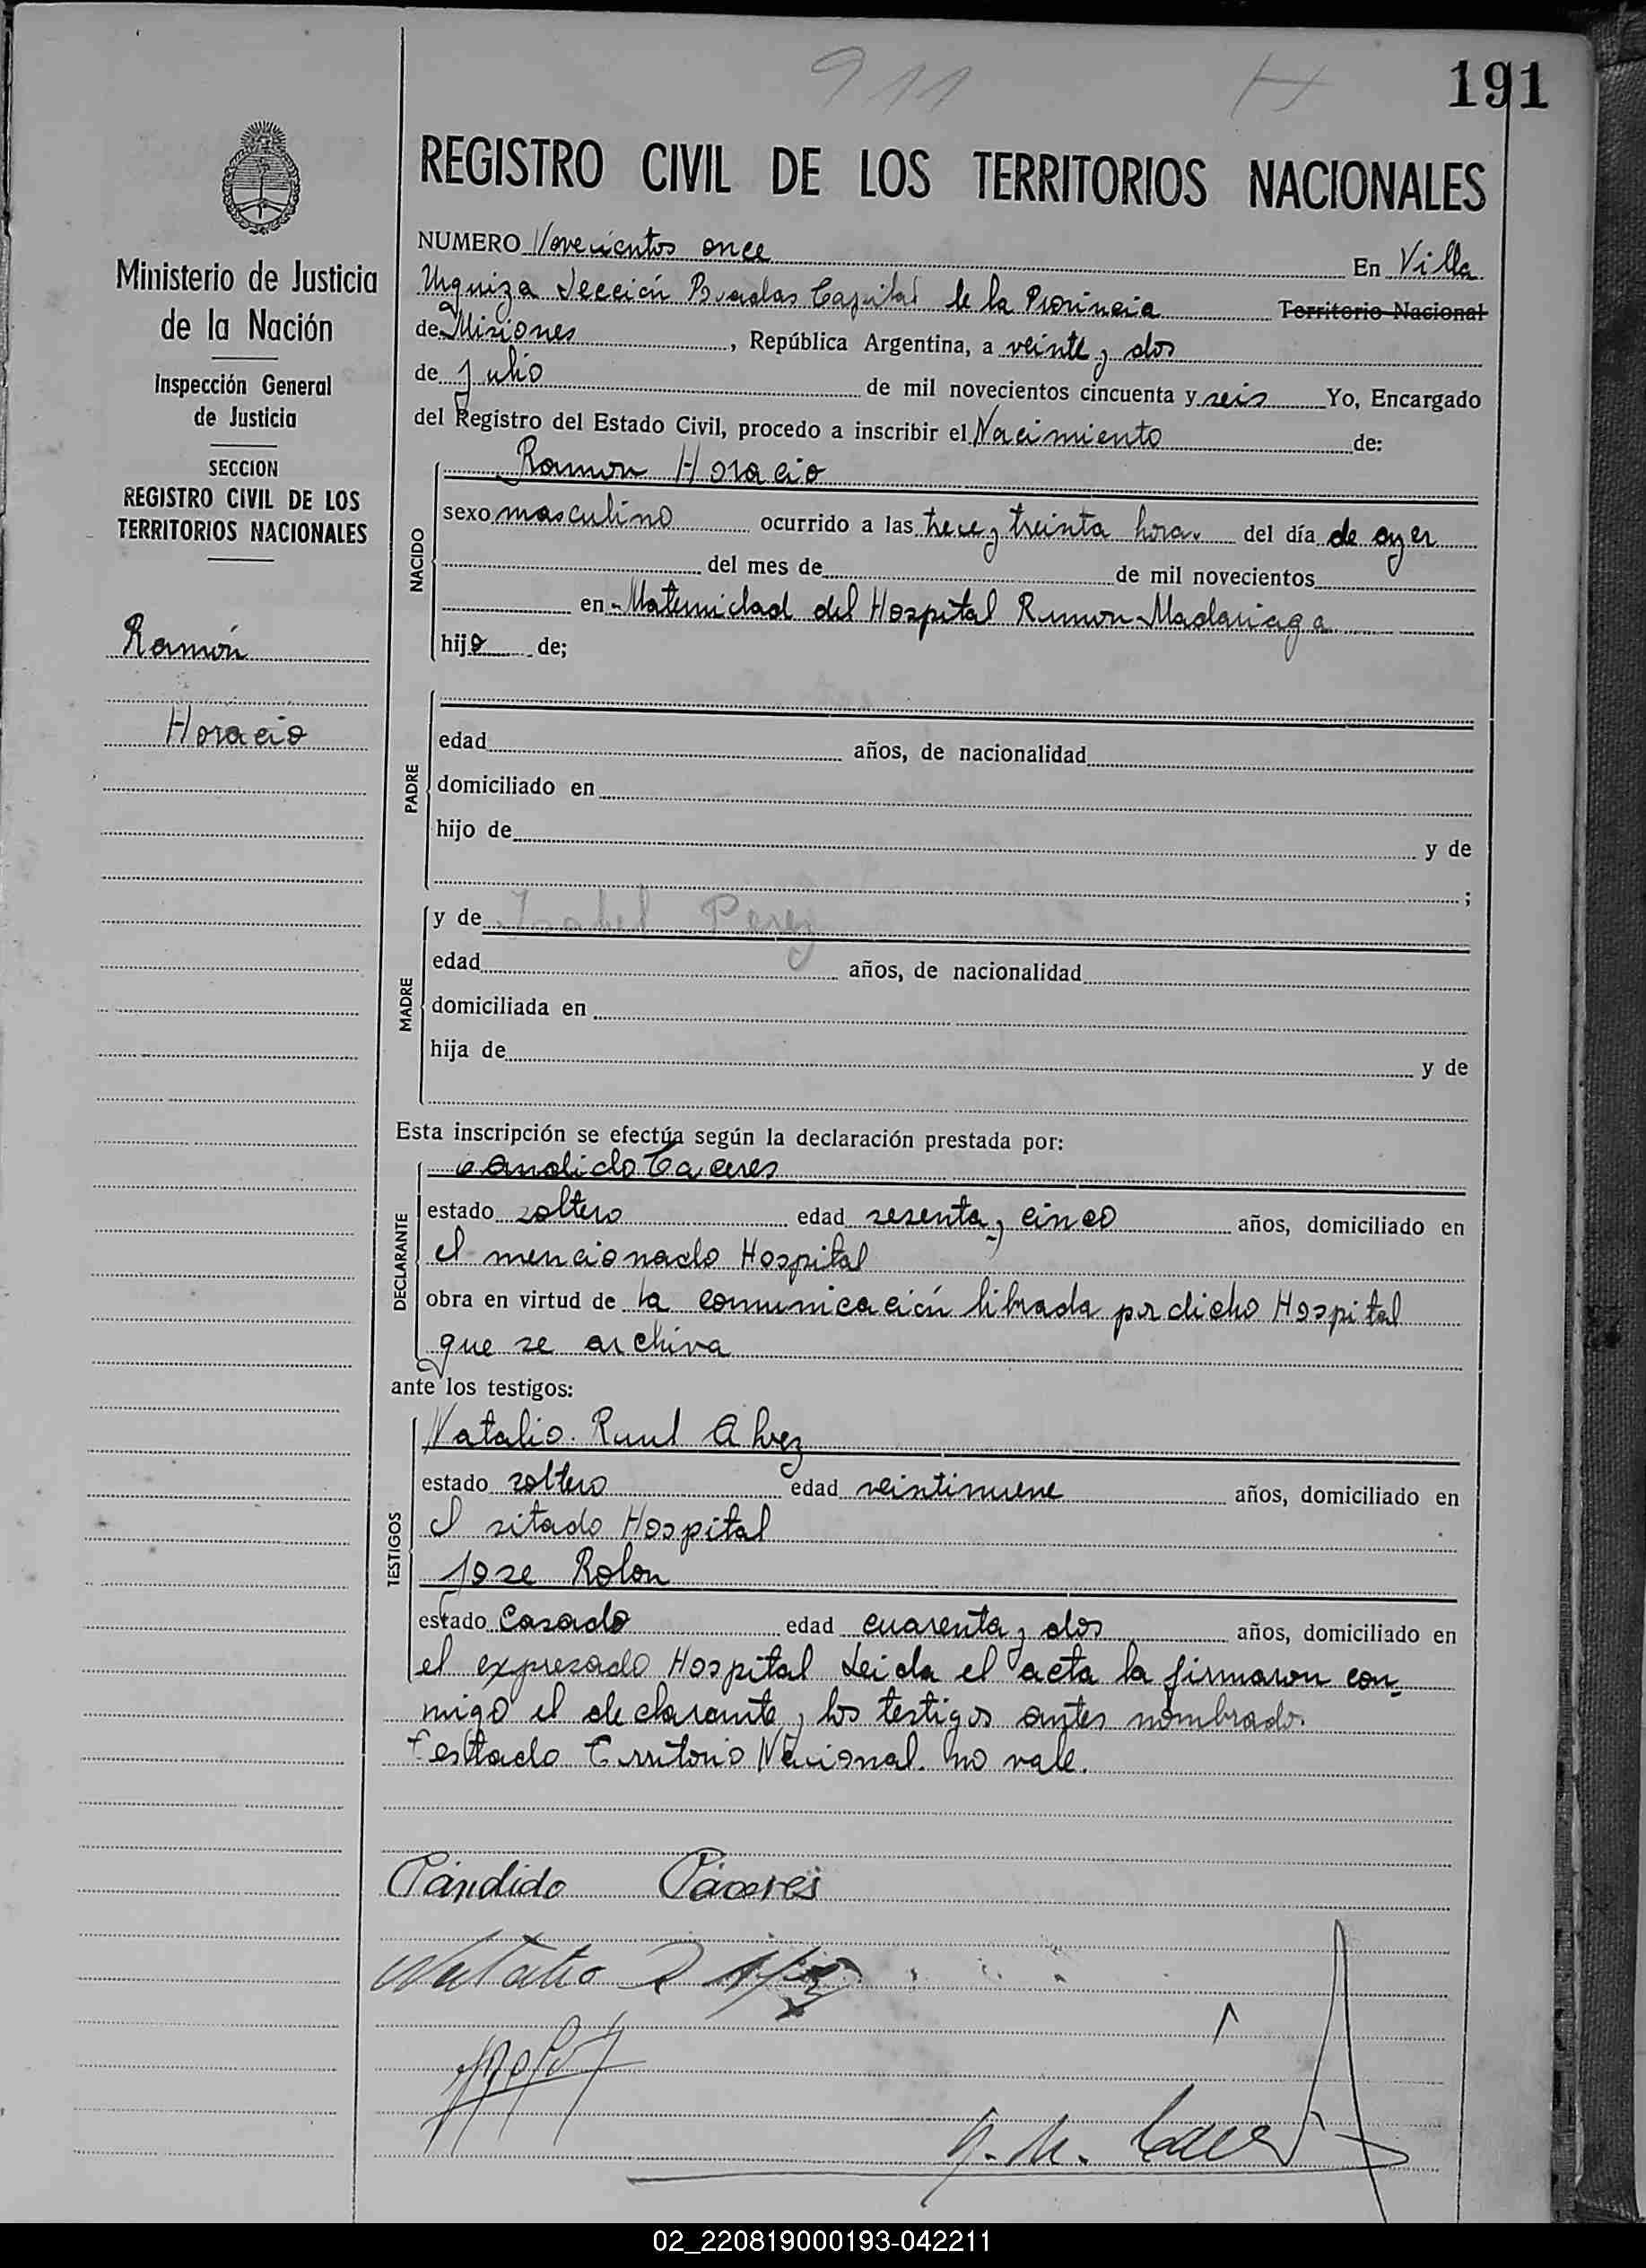 911 H 191
REGISTRO CIVIL DE LOS TERRITORIOS NACIONALES
Ministerio de Justicia
de la Nación
Inspección General
de Justicia
SECCION
REGISTRO CIVIL DE LOS
TERRITORIOS NACIONALES
Ramón
Horacio
NUMERO Novecientos once En Villa
Urquiza Sección Posadas Capital de la Provincia Territorio Nacional
de Misiones, República Argentina, a veinte y dos
de Julio de mil novecientos cincuenta y seis Yo, Encargado
del Registro del Estado Civil, procedo a inscribir el Nacimiento de:
NACIDO
Ramon Horacio
sexo masculino ocurrido a las trece y treinta horas del día de ayer
del mes de de mil novecientos
en Maternidad del Hospital Ramon Madariaga
hijo de;
PADRE
edad años, de nacionalidad
domiciliado en
hijo de y de
;
MADRE
y de Isabel Perez
edad años, de nacionalidad
domiciliada en
hija de y de
Esta inscripción se efectúa según la declaración prestada por:
DECLARANTE
Candido Caceres
estado soltero edad sesenta y cinco años, domiciliado en
el mencionado Hospital
obra en virtud de la comunicación librada por dicho Hospital
que se archiva
ante los testigos:
TESTIGOS
Natalio Raul Alvez
estado soltero edad veintinueve años, domiciliado en
el sitado Hospital
Jose Rolon
estado Casado edad cuarenta y dos años, domiciliado en
el expresado Hospital Leida el acta la firmaron con-
migo el declarante y los testigos antes nombrados.
Testado Territorio Nacional. no vale.
Cándido Cáceres
Natalio R
02_220819000193-042211